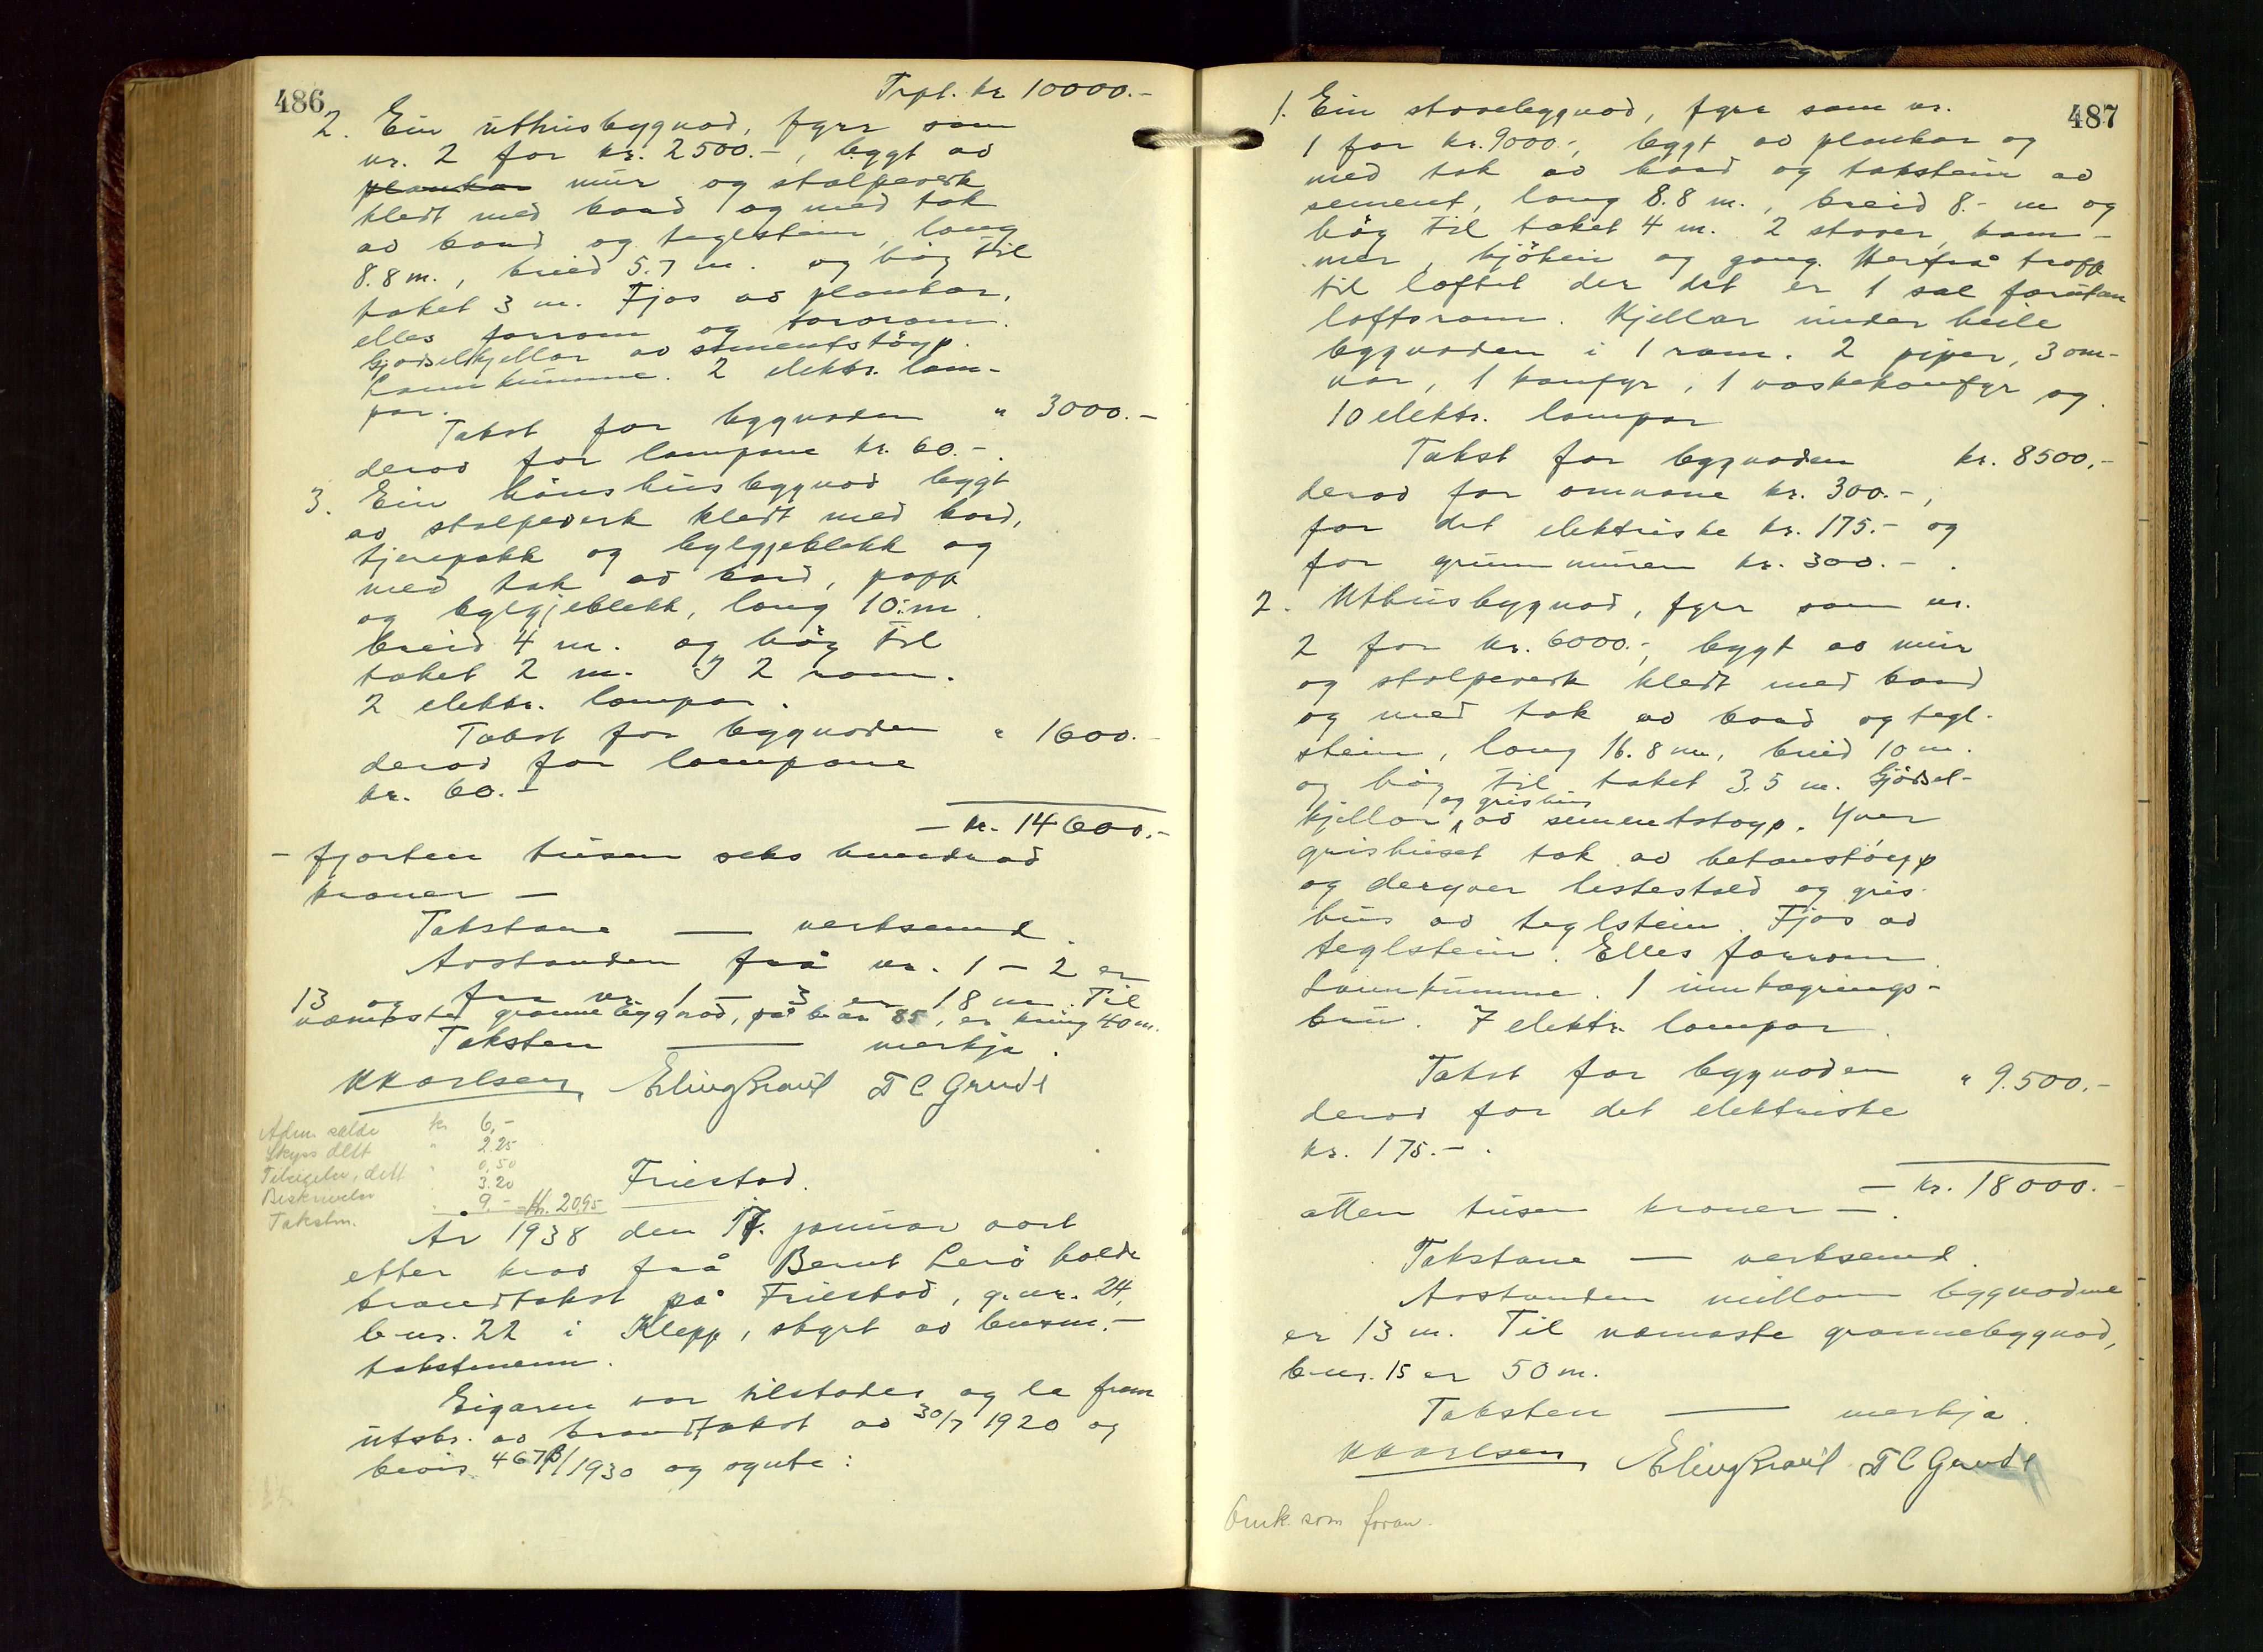 486
Trpt. kr 10000.-
2. Ein uthusbygnad, fyrr som
nr. 2 for kr. 2500.-, bygt av
plankar mur og stolpeverk
kledt med bord og med tak
av bord og teglstein, lang
8.8 m., breid 5.7 m. og høg til
taket 3 m. Fjos av plankar,
elles forrom og
Gjødselkjellar av sementstöyp.
Landkumme. 2 elektr. lam-
par.
Takst for bygnaden " 3000.-
derav for lampane kr. 60.-.
3. Ein hönshusbygnad bygt
av stolpeverk kledt med bord,
tjerepakk og bylgjeblekk og
med tak av bord, papp
og bylgjeblekk, lang 10.- m
breid 4 m. og høg til
taket 2 m. I 2 rom.
2 elektr. lampar.
Takst for bygnaden " 1600.-
derav for lampane
kr. 60.-
- kr. 14600.-
- fjorten tusen seks hundrad
kroner -
Takstane — verksemd.
Avstanden frå nr. 1 - 2 er
13 og fra nr. 1 - 3 er 18 m. Til
næmaste grannebygnad, på b.nr 85, er kring 40 m.
Taksten — merkja.
KKarlsen Erling Braut T C Grude
Adm. sælde kr 6,-
Skyss dett " 2.25
Tilsigelse, dett " 0,50
Beskrivelse " 3.20
Takstm. " 9.- = Kr. 20,95
Friestad.
År 1938 den 17. januar vart
etter krav frå Bernt Lerö halde
brandtakst på Friestad, g.nr. 24,
b.nr. 22 i Klepp, styrt av lensm.-
takstmenn.
Eigaren var tilstades og la fram
utskr. av brandtakst av 30/7 1920 og
bevis 467B/1930 og synte:
487
1. Ein stovebygnad, fyrr som nr.
1 for kr. 9000.-, bygt av plankar og
med tak av bord og takstein av
sement, lang 8.8 m., breid 8.- m og
høg til taket 4 m. 2 stover, kam-
mer, kjöken og gang. Herfrå tropp
til loftet der det er 1 sal forutan
loftsrom. Kjellar under heile
bygnaden i 1 rom. 2 piper, 3 om-
nar, 1 komfyr, 1 vaskekomfyr og
10 elektr. lampar
Takst for bygnaden kr. 8500,-
derav for omnane kr. 300.-,
for det elektriske kr. 175.- og
for grunnmuren kr. 300.-.
2. Uthusbygnad, fyrr som nr.
2 for kr. 6000.-, bygt av mur
og stolpeverk kledt med bord
og med tak av bord og tegl-
stein, lang 16.8 m, breid 10 m.
og høg til taket 3.5 m. Gjödsel-
og grishus
kjellar av sementstøyp. Yver
grishuset tak av betongstöyp
og deryver hestestall og gris-
hus av teglstein. Fjos av
teglstein. Elles forrom.
Landkumme. 1 innkøyrings-
bru. 7 elektr. lampar.
Takst for bygnaden " 9.500.-
derav for det elektriske
kr. 175.-.
- kr. 18000.-
atten tusen kroner -.
Takstane — verksemd.
Avstanden millom bygnadene
er 13 m. Til næmaste grannebygnad,
b.nr. 15 er 50 m.
Taksten — merkja.
KKarlsen Erling Braut T C Grude
Omk. som foran.